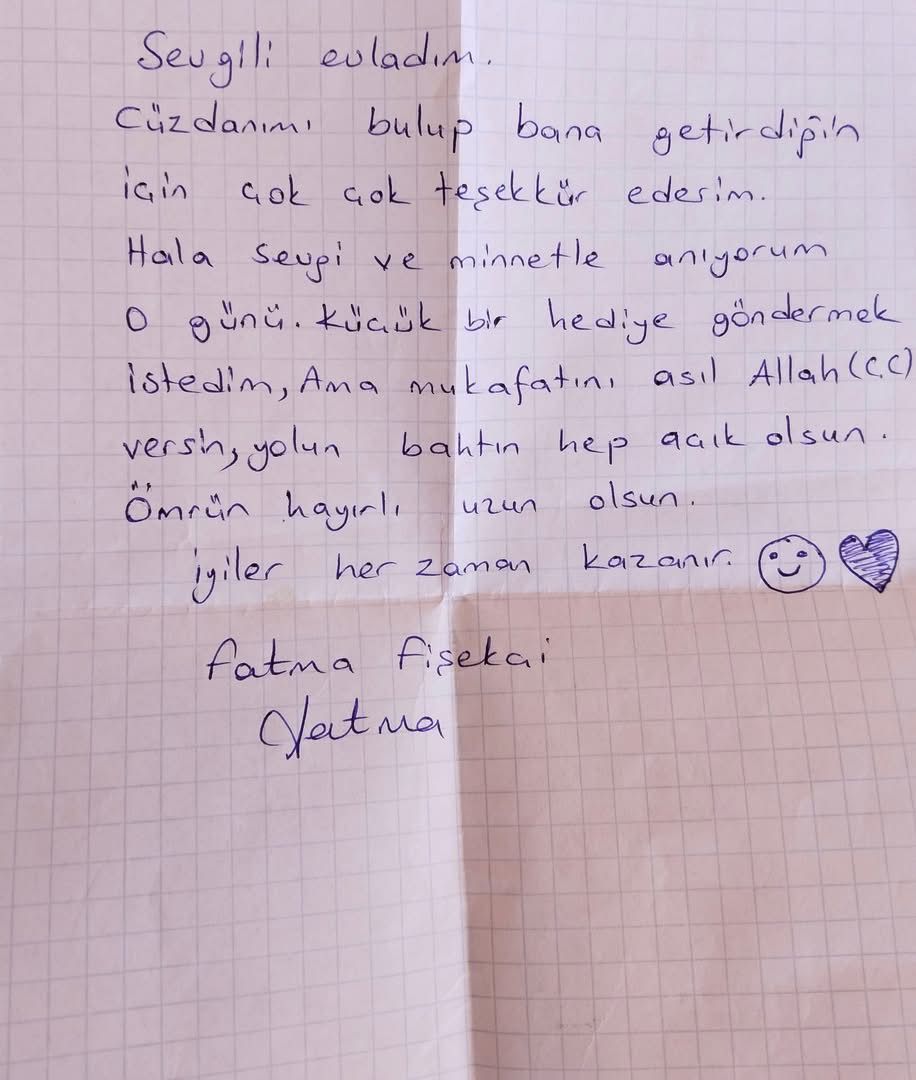 Sevgili evladım.
Cüzdanımı bulup bana getirdiğin
için çok çok teşekkür ederim.
Hala sevgi ve minnetle anıyorum
O günü. Küçük bir hediye göndermek
istedim, Ama mukafatını asıl Allah (c.c)
versin, yolun bahtın hep açık olsun.
Ömrün hayırlı uzun olsun.
iyiler her zaman kazanır.
Fatma Fişekçi
Fatma